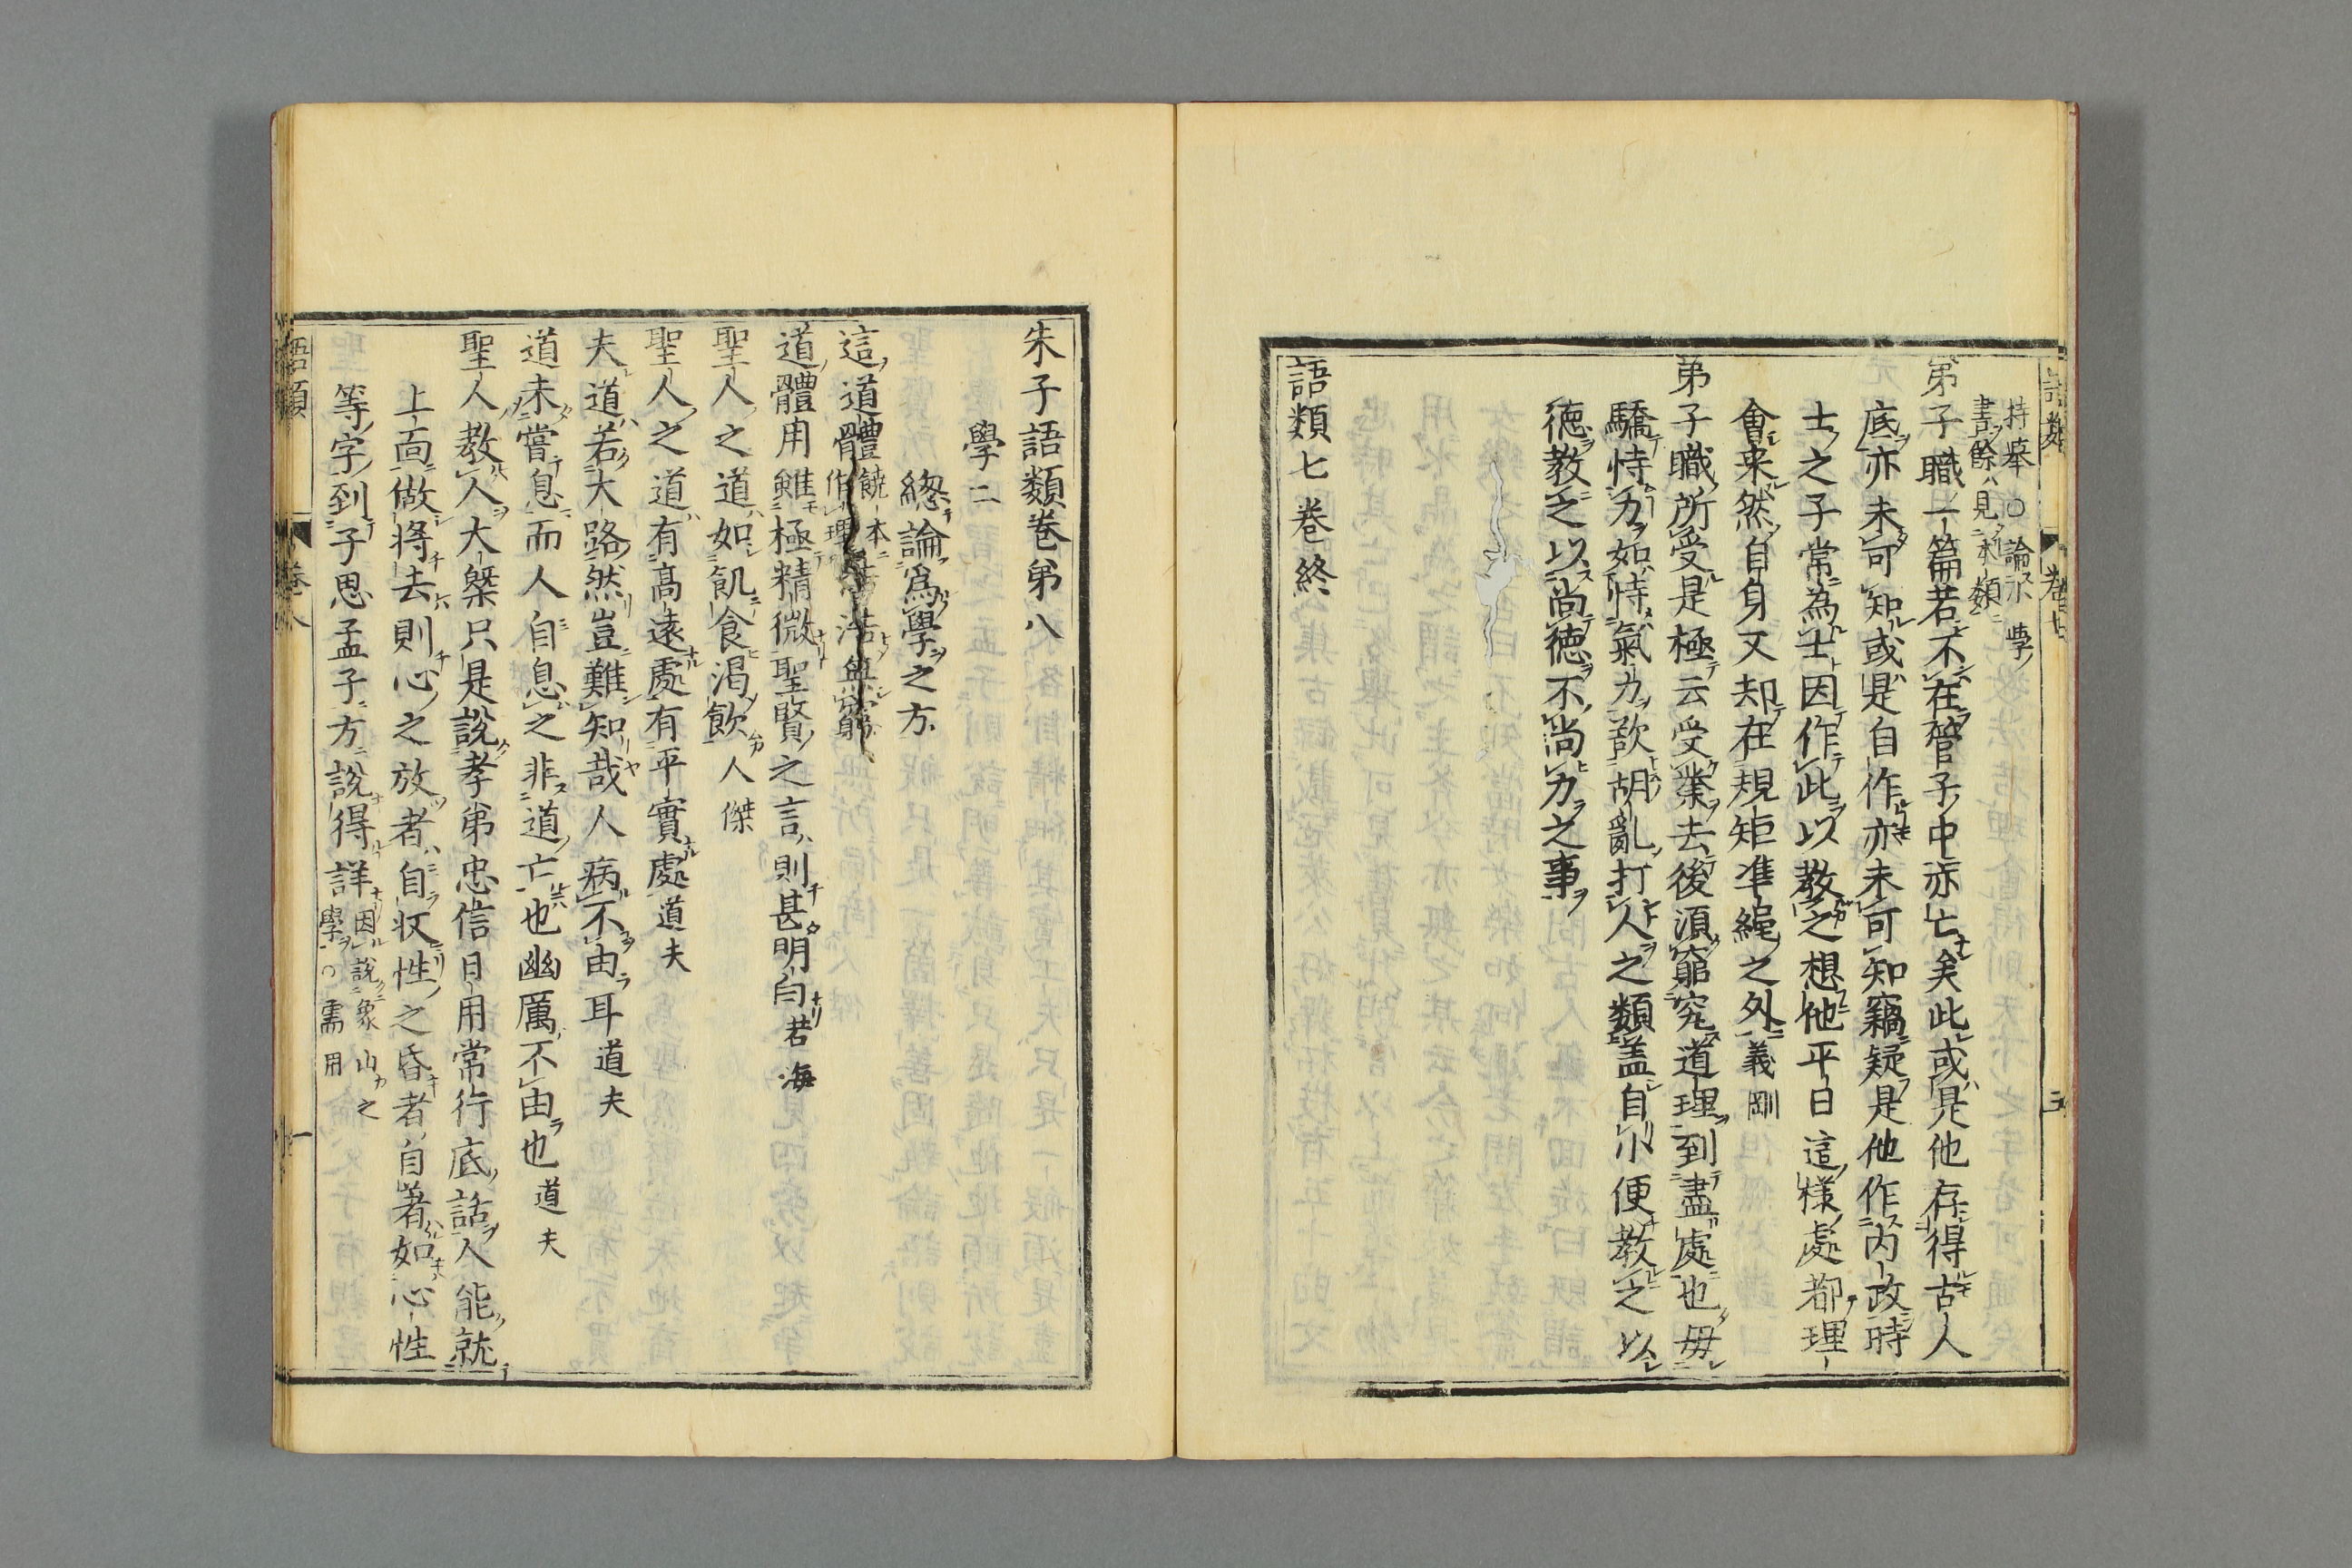 持舉○論小學
書餘見本類
弟子職一篇若不在管子中亦亡矣此或是他存得古人
底亦未可知或是自作亦未可知竊疑是他作内政時
士之子常為士因作此以教之想他平日這様處都理
會来然自身又却在規矩凖繩之外義剛
弟子職所受是極云受業去後湏窮究道理到盡處也毋
驕恃力如恃氣力欲胡亂打人之類盖自小便教之以
徳教之以尚徳不尚力之事
語類七卷終
朱子語類卷第八
學二
緫論爲學之方
這道體饒本作理浩浩無窮
道體用雖極精微聖賢之言則甚明白若海
聖人之道如飢食渇飲人傑
聖人之道有髙逺處有平實處道夫
夫道若大路然豈難知哉人病不由耳道夫
道未嘗息而人自息之非道亡也幽厲不由也道夫
聖人教人大槩只是説孝弟忠信日用常行底話人能就
上靣做將去則心之放者自收性之昏者自著如心性
等字到子思孟子方説得詳因説象山之學○儒用
語類
卷八
一